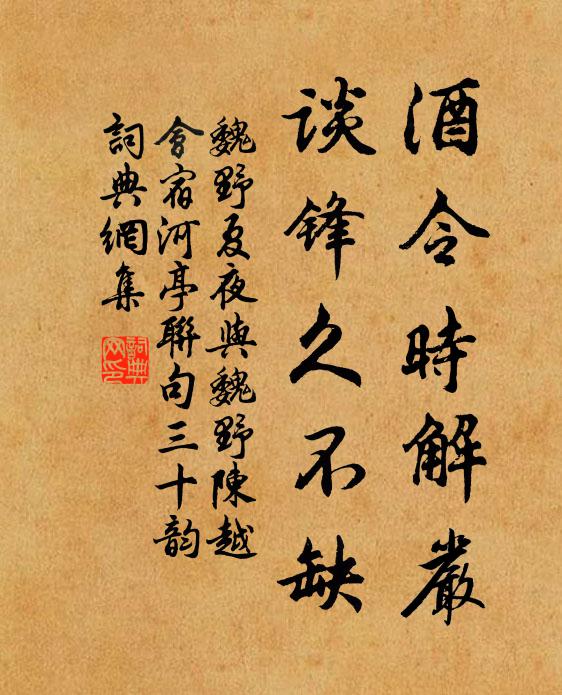 酒令時解嚴
談鋒久不缺
魏野夏夜與魏野陳越
會宿河亭聯句三十韵
詞典網集
詞典网印